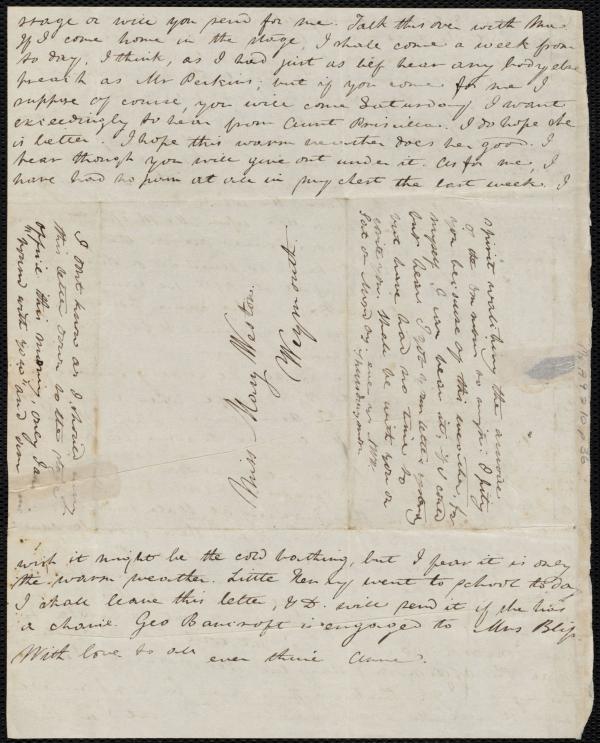 stage or will you send for me. Talk this over with Ma
If I come home in the stage, I shall come a week from
to day, I think, as I had just as lief hear any body else
preach as Mr Perkins; but if you come for me I
suppose of course, you will come Saturday. I want
exceedingly to hear from Aunt Priscilla. I do hope she
is better. I hope this warm weather does her good. I
hear though you will give out under it. As for me, I
have had no pain at all in my chest the last week. I
spirit watching the
of the I pity
you because of this weather, for
myself I can bear it, if I could
but hear. I got your letter yesterday
but have had no time to
write you. Shall be with you on
Sat or Monday.
Thursday morn
Miss Mary Weston.
Weymouth.
I dont know as I should
this letter down to the
office this morning, only I am
with you, and
wish it might be the cold bathing, but I fear it is only
the warm weather. Little Henry went to school to day
I shall leave this letter, & D. will send it if she has
a chance. Geo Bancroft is engaged to Mrs Bliss
With love to all ever thine Anne.
Ms. A. 9. 2. 10 p. 36